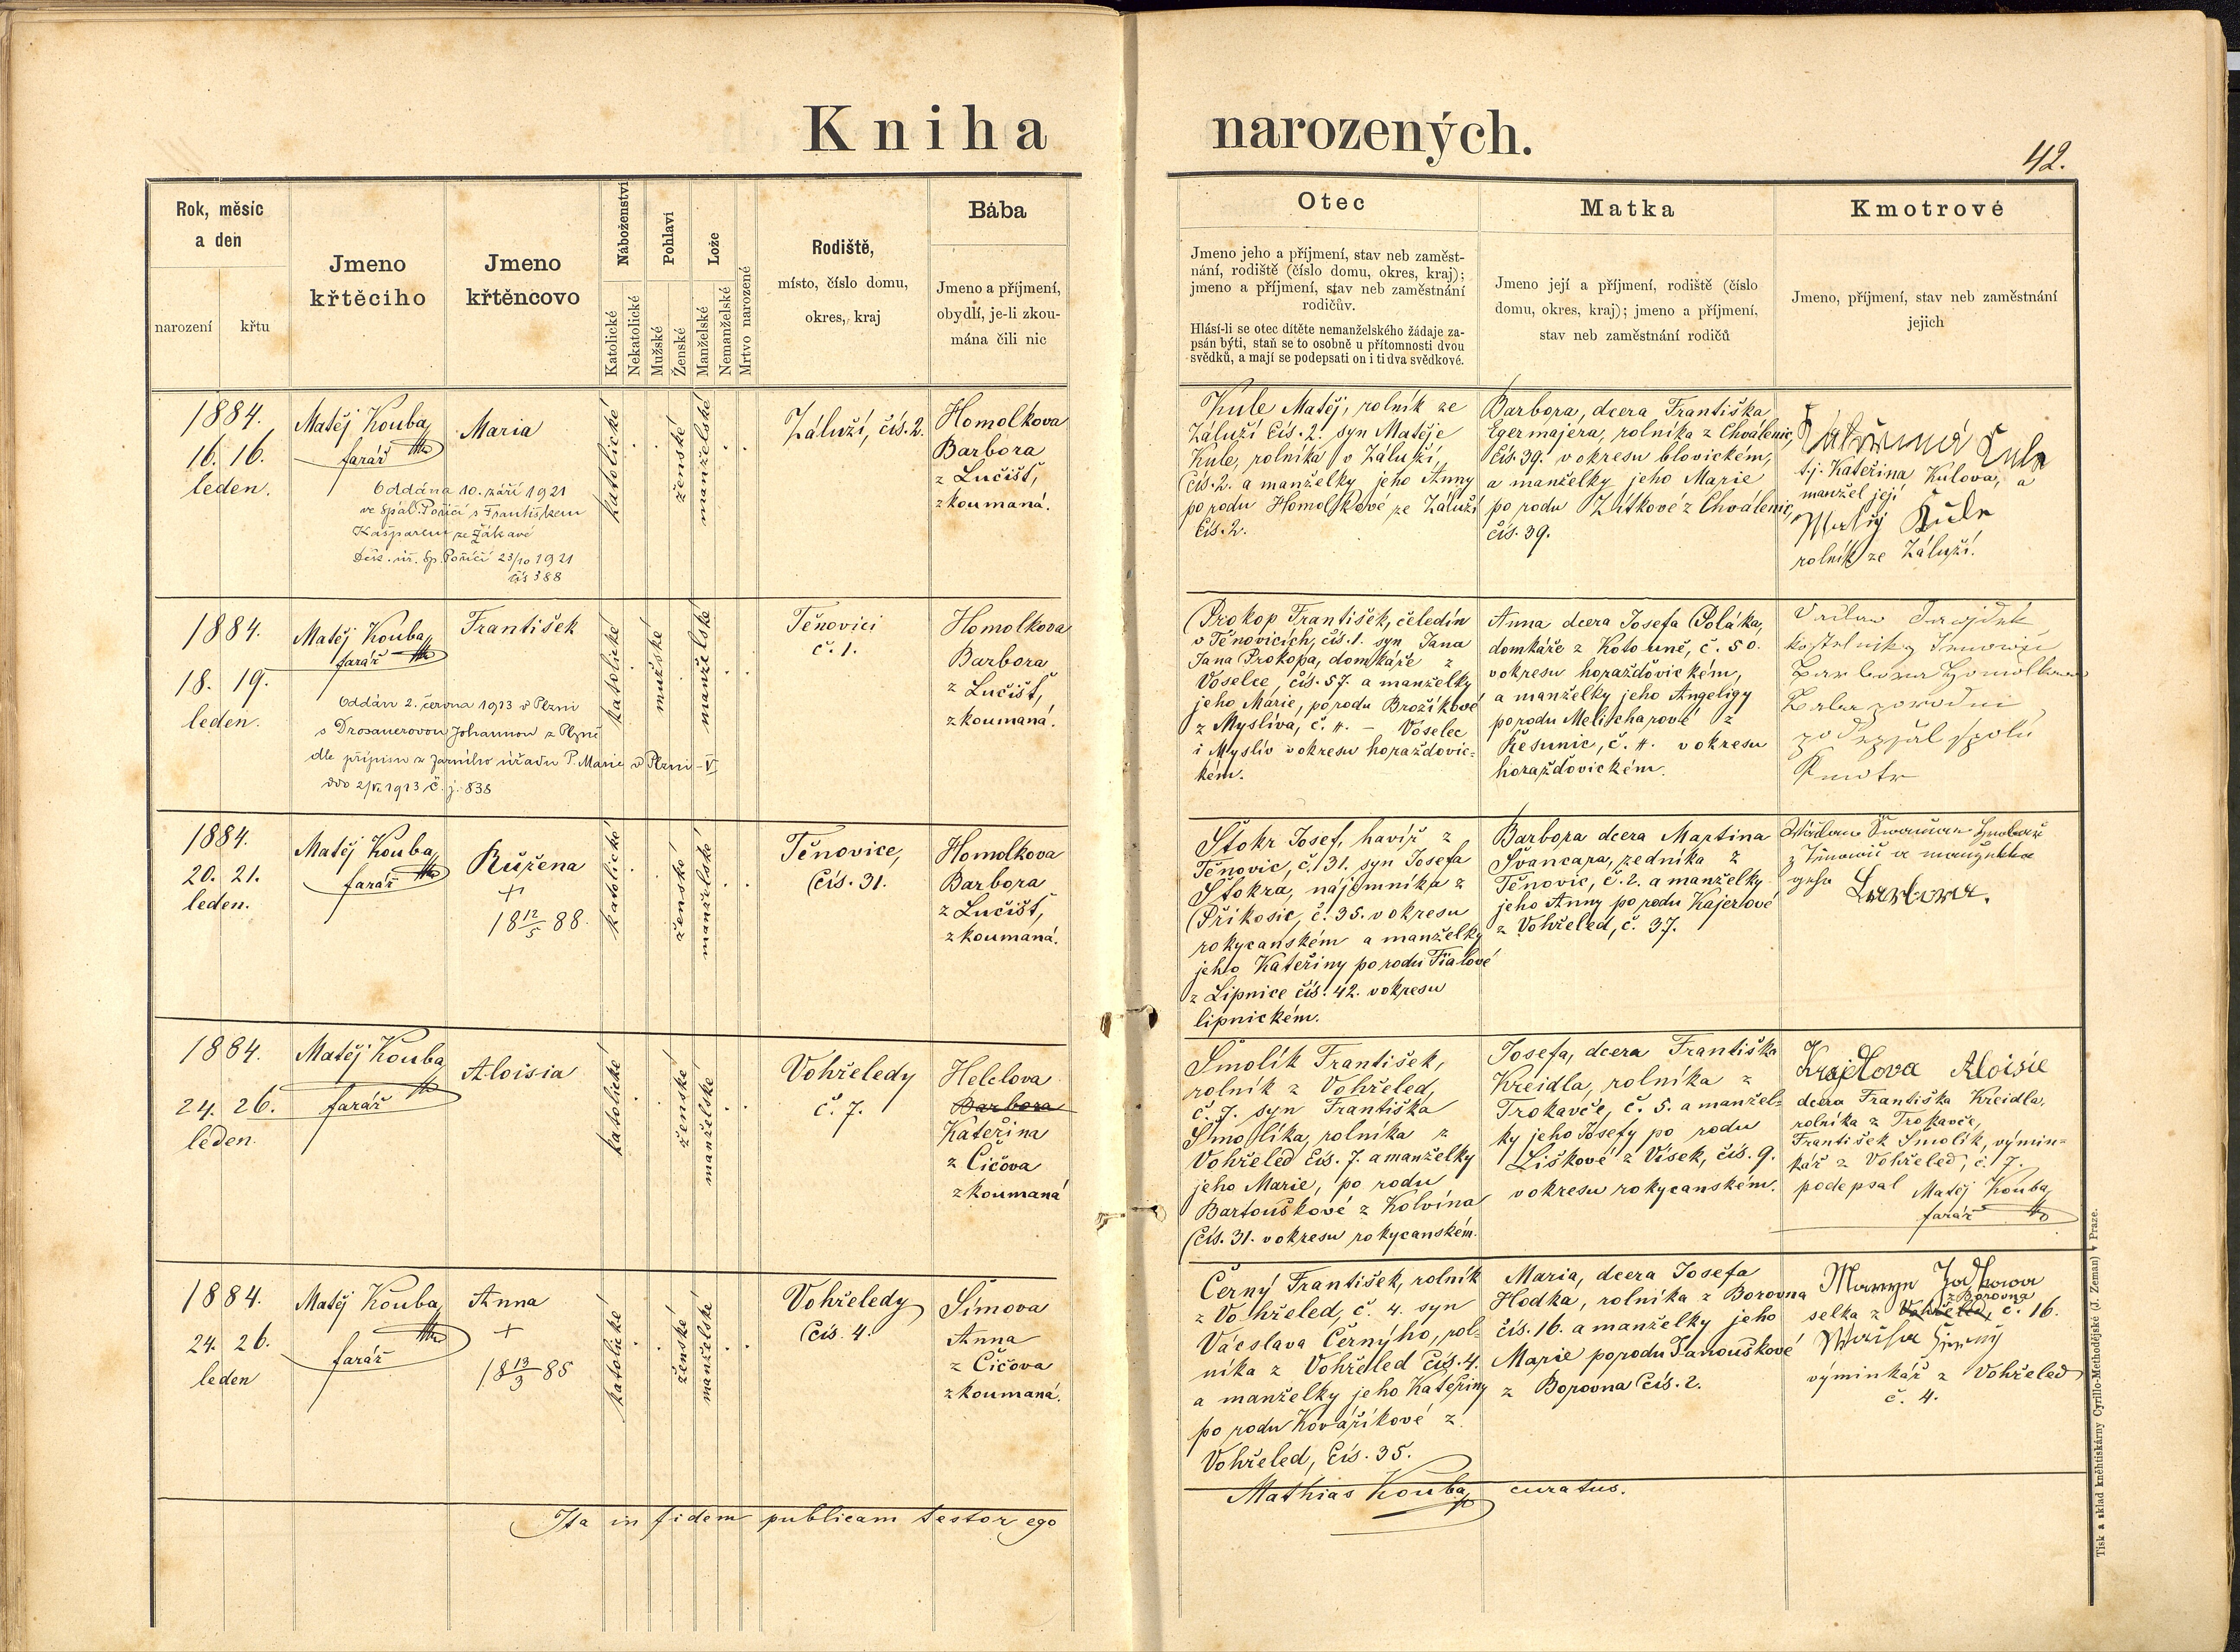 Kniha narozených.
42.
Rok, měsíc
a den
narození
křtu
Jmeno
křtěcího
Jmeno
křtěncovo
Náboženství
Katolické
Nekatolické
Pohlaví
Mužské
Ženské
Lože
Manželské
Nemanželské
Mrtvo narozené
Rodiště,
místo, číslo domu,
okres, kraj
Bába
Jmeno a příjmení,
obydlí, je-li zkou-
mána čili nic
Otec
Jmeno jeho a příjmení, stav neb zaměst-
nání, rodiště (číslo domu, okres, kraj);
jmeno a příjmení, stav neb zaměstnání
rodičův.
Hlásí-li se otec dítěte nemanželského žádaje za-
psán býti, staň se to osobně u přítomnosti dvou
svědků, a mají se podepsati on i ti dva svědkové.
Matka
Jmeno její a příjmení, rodiště (číslo
domu, okres, kraj); jmeno a příjmení,
stav neb zaměstnání rodičů
Kmotrové
Jmeno, příjmení, stav neb zaměstnání
jejich
1884.
16. 16.
leden.
Matěj Kouba,
farář
Maria
Oddána 10. září 1921
ve Spál. Poříčí s Františkem
Kašparem ze Žákavé
Děk. úř. Sp. Poříčí 23/10 1921
čís 388
katolické
ženské
manželské
Záluží, čís. 2.
Homolkova
Barbora
z Lučišť,
zkoumaná.
Kule Matěj, rolník ze
Záluží čís. 2. syn Matěje
Kule, rolníka v Záluží,
čís. 2. a manželky jeho Anny
po rodu Homolkové ze Záluží
čís. 2.
Barbora, dcera Františka
Egermajera, rolníka z Chválenic,
čís. 39. v okresu blovickém,
a manželky jeho Marie
po rodu Zítkové z Chválenic,
čís. 39.
Kula
t.j. Kateřina Kulova, a
manžel její
Matěj Kule
rolník ze Záluží.
1884.
18. 19.
leden.
Matěj Kouba,
farář
František
Oddán 2. června 1913 v Plzni
s Drosauerovou Johannou z Plzně
dle přípisu z farního úřadu P. Marie v Plzni - VI
ddo 2/VI. 1913 č. j. 838
katolické
mužské
manželské
Těnovici
č. 1.
Homolkova
Barbora
z Lučišť,
zkoumaná.
Prokop František, čeledín
v Těnovicích, čís. 1. syn Jana
Jana Prokopa, domkáře z
Voselce, čís. 57. a manželky
jeho Marie, po rodu Brožíkové
z Myslíva, č. 4. - Voselec
i Myslív v okresu horažďovic-
kém.
Anna dcera Josefa Poláka,
domkáře z Kotouně, č. 50.
v okresu horažďovickém,
a manželky jeho
po rodu Melicharové z
Řesanic, č. 4. v okresu
horažďovickém.
Barbora Homolkova
Kmotr
1884.
20. 21.
leden.
Matěj Kouba,
farář
Růžena
+
18 12/5 88.
katolické
ženské
manželské
Těnovice,
čís. 31.
Homolkova
Barbora
z Lučišť,
zkoumaná.
Štokr Josef, havíř z
Těnovic, č. 31. syn Josefa
Štokra, nájemníka z
Příkosic, č. 35. v okresu
rokycanském a manželky
jeho Kateřiny po rodu Fialové
z Lipnice čís. 42. v okresu
lipnickém.
Barbora dcera Martina
Švancara, zedníka z
Těnovic, č. 2. a manželky
jeho Anny po rodu Kajerlové
z Vohřeled, č. 37.
Barbora.
1884.
24. 26.
leden.
Matěj Kouba,
farář
Aloisia
katolické
ženské
manželské
Vohřeledy
č. 7.
Helclova
Barbora
Kateřina
z Čičova
zkoumaná
Smolík František,
rolník z Vohřeled,
č. 7. syn Františka
Smolíka, rolníka z
Vohřeled čís. 7. a manželky
jeho Marie, po rodu
Bartouškové z Kolvína
čís. 31. v okresu rokycanském.
Josefa, dcera Františka
Kreidla, rolníka z
Trokavče, č. 5. a manžel-
ky jeho Josefy po rodu
Liškové z Vísek, čís. 9.
v okresu rokycanském.
Krajdlova Aloisie
dcera Františka Kreidla,
rolníka z Trokavče,
František Smolík, výmin-
kář z Vohřeled, č. 7.
podepsal Matěj Kouba,
farář
1884.
24. 26.
leden
Matěj Kouba,
farář
Anna
+
18 13/3 85
katolické
ženské
manželské
Vohřeledy
čís. 4.
Šímova
Anna
z Čičova
zkoumaná.
Černý František, rolník
z Vohřeled, č. 4. syn
Václava Černýho, rol-
níka z Vohřeled čís. 4.
a manželky jeho Kateřiny
po rodu Kovaříkové z
Vohřeled, čís. 35.
Maria, dcera Josefa
Hodka, rolníka z Borovna
čís. 16. a manželky jeho
Marie po rodu Janouškové
z Borovna čís. 2.
z Borovna
selka z Vohřeled, č. 16.
výminkář z Vohřeled
č. 4.
Ita in fidem publicam testor ego
Mathias Kouba, curatus.
Tisk a sklad kněhtiskárny Cyrillo-Methodějské (J. Zeman) v Praze.